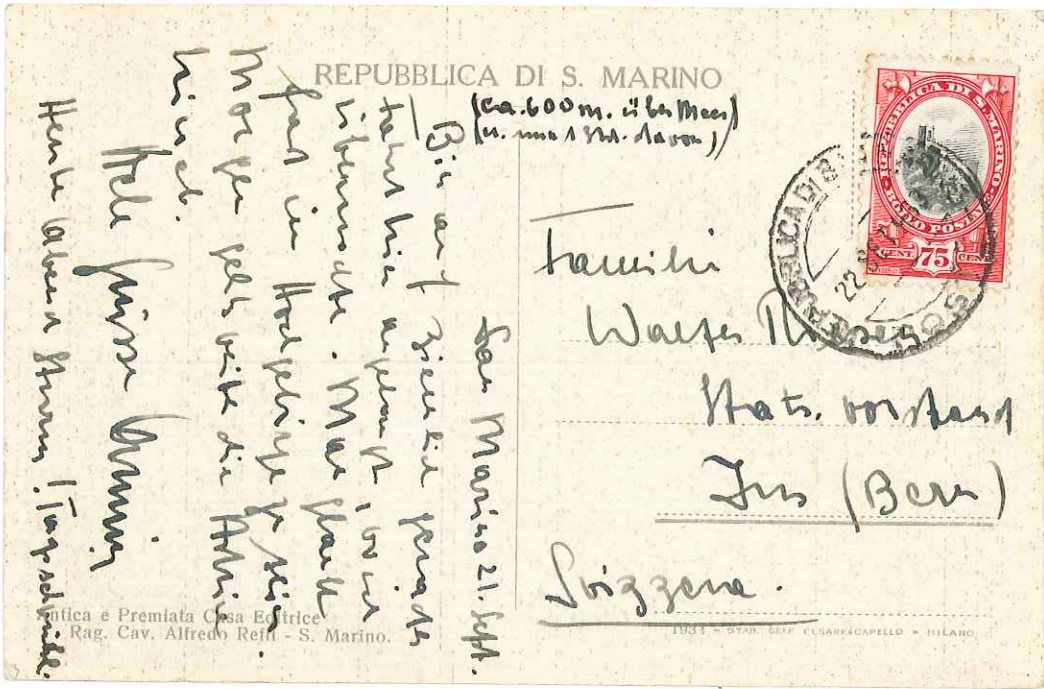 REPUBBLICA DI S. MARINO
(ca. 600 m. über Meer)
(u. nur 1 Std. davon)
San Marino 21. Sept.
Bin auf ziemlich gerader
Fahrt hier angelangt, wo ich
übernachte. Man glaubt
fast im Hochgebirge zu sein.
Morgen geht's weiter die Adria
hinab.
Grüsse Armin
Heute Abend Sturm!
Familie
Walter
Stats. vorstand
Ins (Bern)
Svizzera.
REPUBBLICA DI S. MARINO
BOLLO POSTALE
CENT 75 CENT
REPUBBLICA DI S.
22
Antica e Premiata Casa Editrice
Rag. Cav. Alfredo Reffi - S. Marino.
STAB. GRAF. CESARE CAPELLO - MILANO